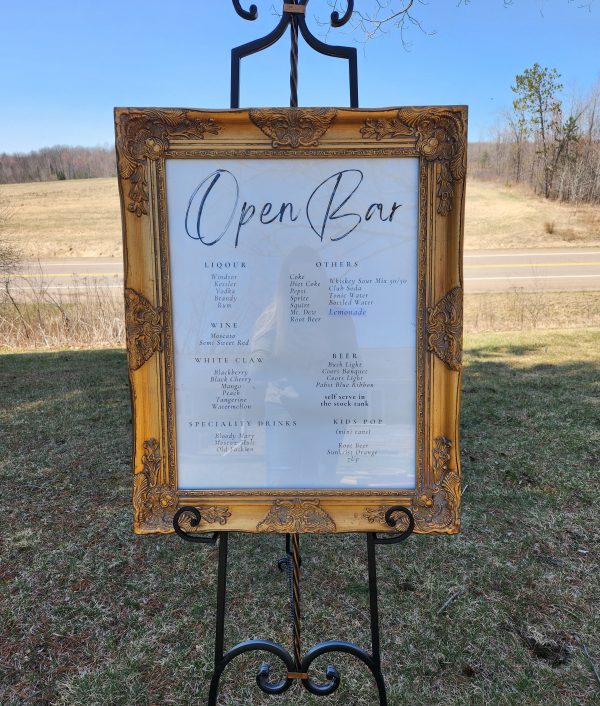 Open Bar
LIQOUR
Windsor
Kessler
Vodka
Brandy
Rum
OTHERS
Coke
Diet Coke
Pepsi
Sprite
Squirt
Mt. Dew
Root Beer
Whiskey Sour Mix 50/50
Club Soda
Tonic Water
Bottled Water
Lemonade
WINE
Moscato
Semi Sweet Red
WHITE CLAW
Blackberry
Black Cherry
Mango
Peach
Tangerine
Watermellon
BEER
Bush Light
Coors Banquet
Coors Light
Pabst Blue Ribbon
self serve in
the stock tank
SPECIALITY DRINKS
Bloody Mary
Moscow Mule
Old Fashion
KIDS POP
(mini cans)
Root Beer
Sunkist Orange
7up